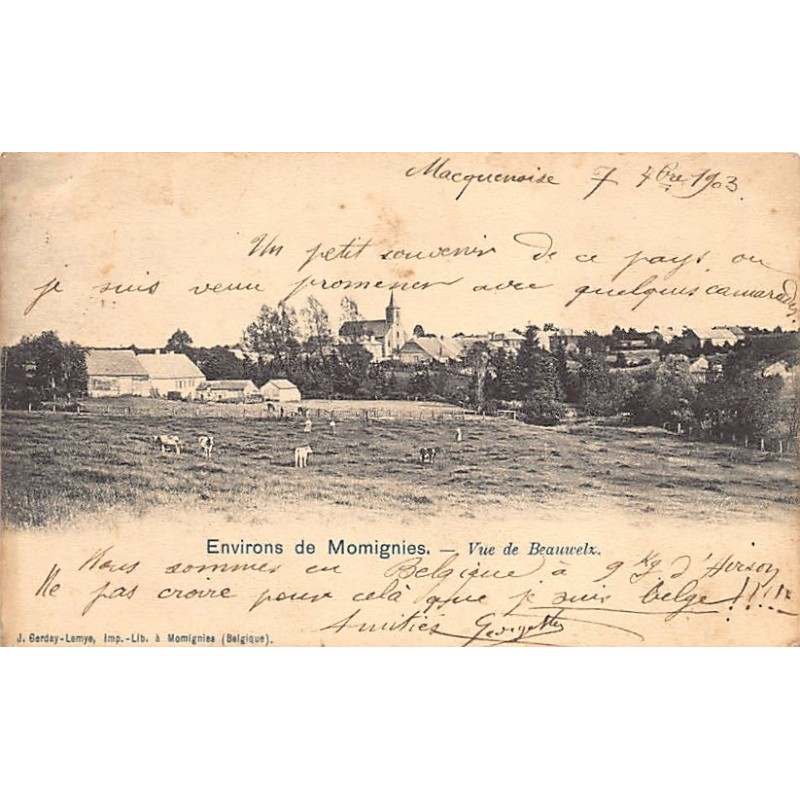 Macquenoise 7 7bre 1903
Un petit souvenir de ce pays ou
je suis venu promener avec quelques camarades
Environs de Momignies. — Vue de Beauwelz.
Nous sommes en Belgique à 9 Kg d'Hirson
Ne pas croire pour celà que je suis belge !!...!!
Amitiés Georgette
J. Gerday-Lemye, Imp.-Lib. à Momignies (Belgique).